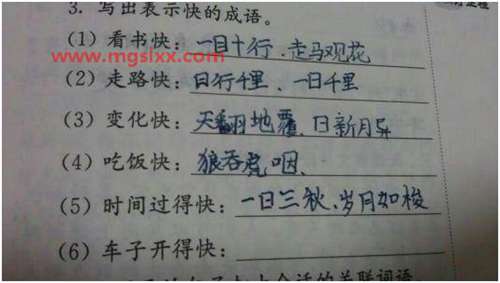 3. 写出表示快的成语。
(1) 看书快：一目十行、走马观花
www.mgslxx.com
(2) 走路快：日行千里、一日千里
(3) 变化快：天翻地覆、日新月异
(4) 吃饭快：狼吞虎咽、
(5) 时间过得快：一日三秋、岁月如梭
(6) 车子开得快：